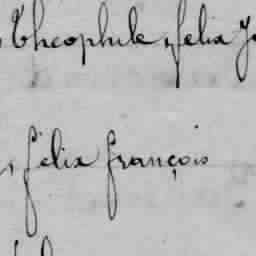 Théophile, félix
, félix françois